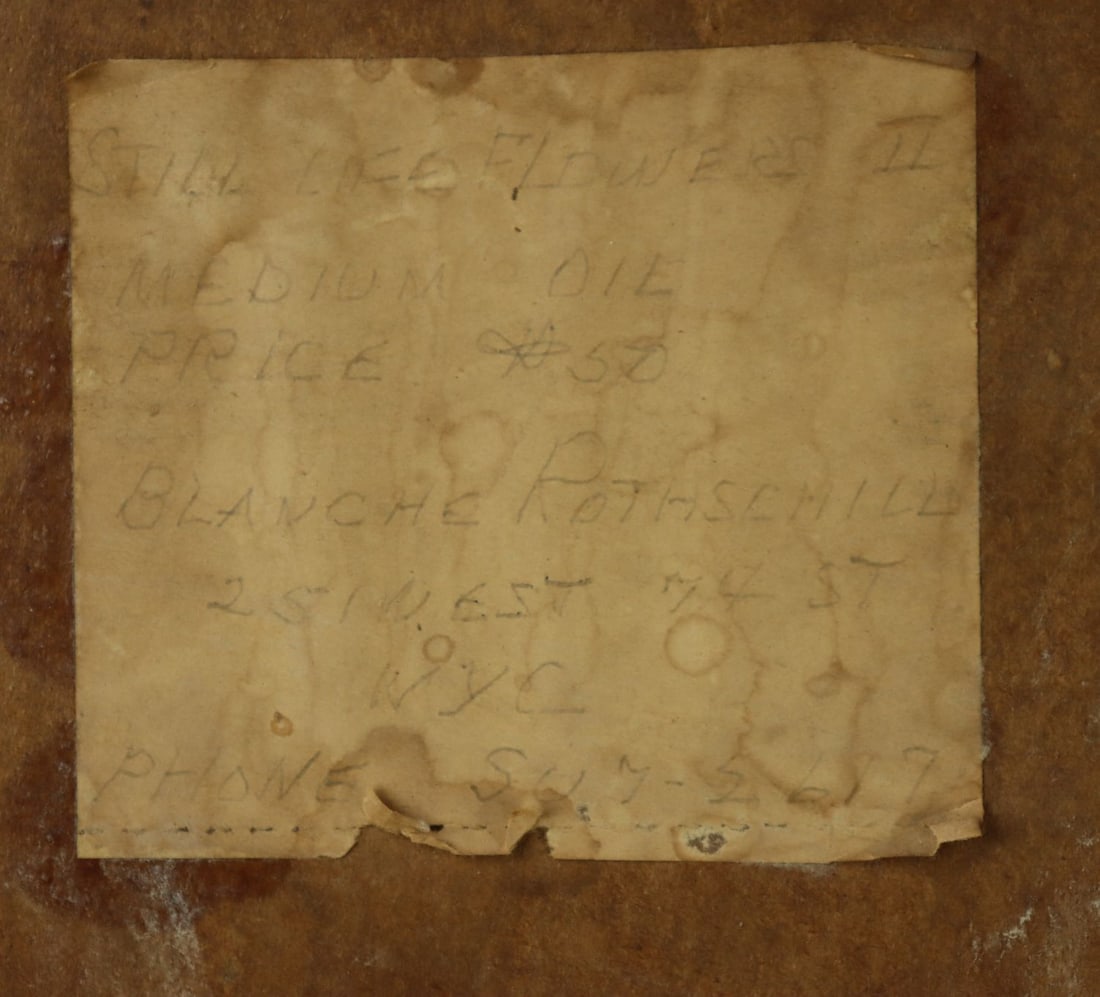 STILL LIFE FLOWERS II
MEDIUM OIL
PRICE $50
BLANCHE ROTHSCHILD
25 WEST 74 ST
NYC
PHONE SU 7-2617